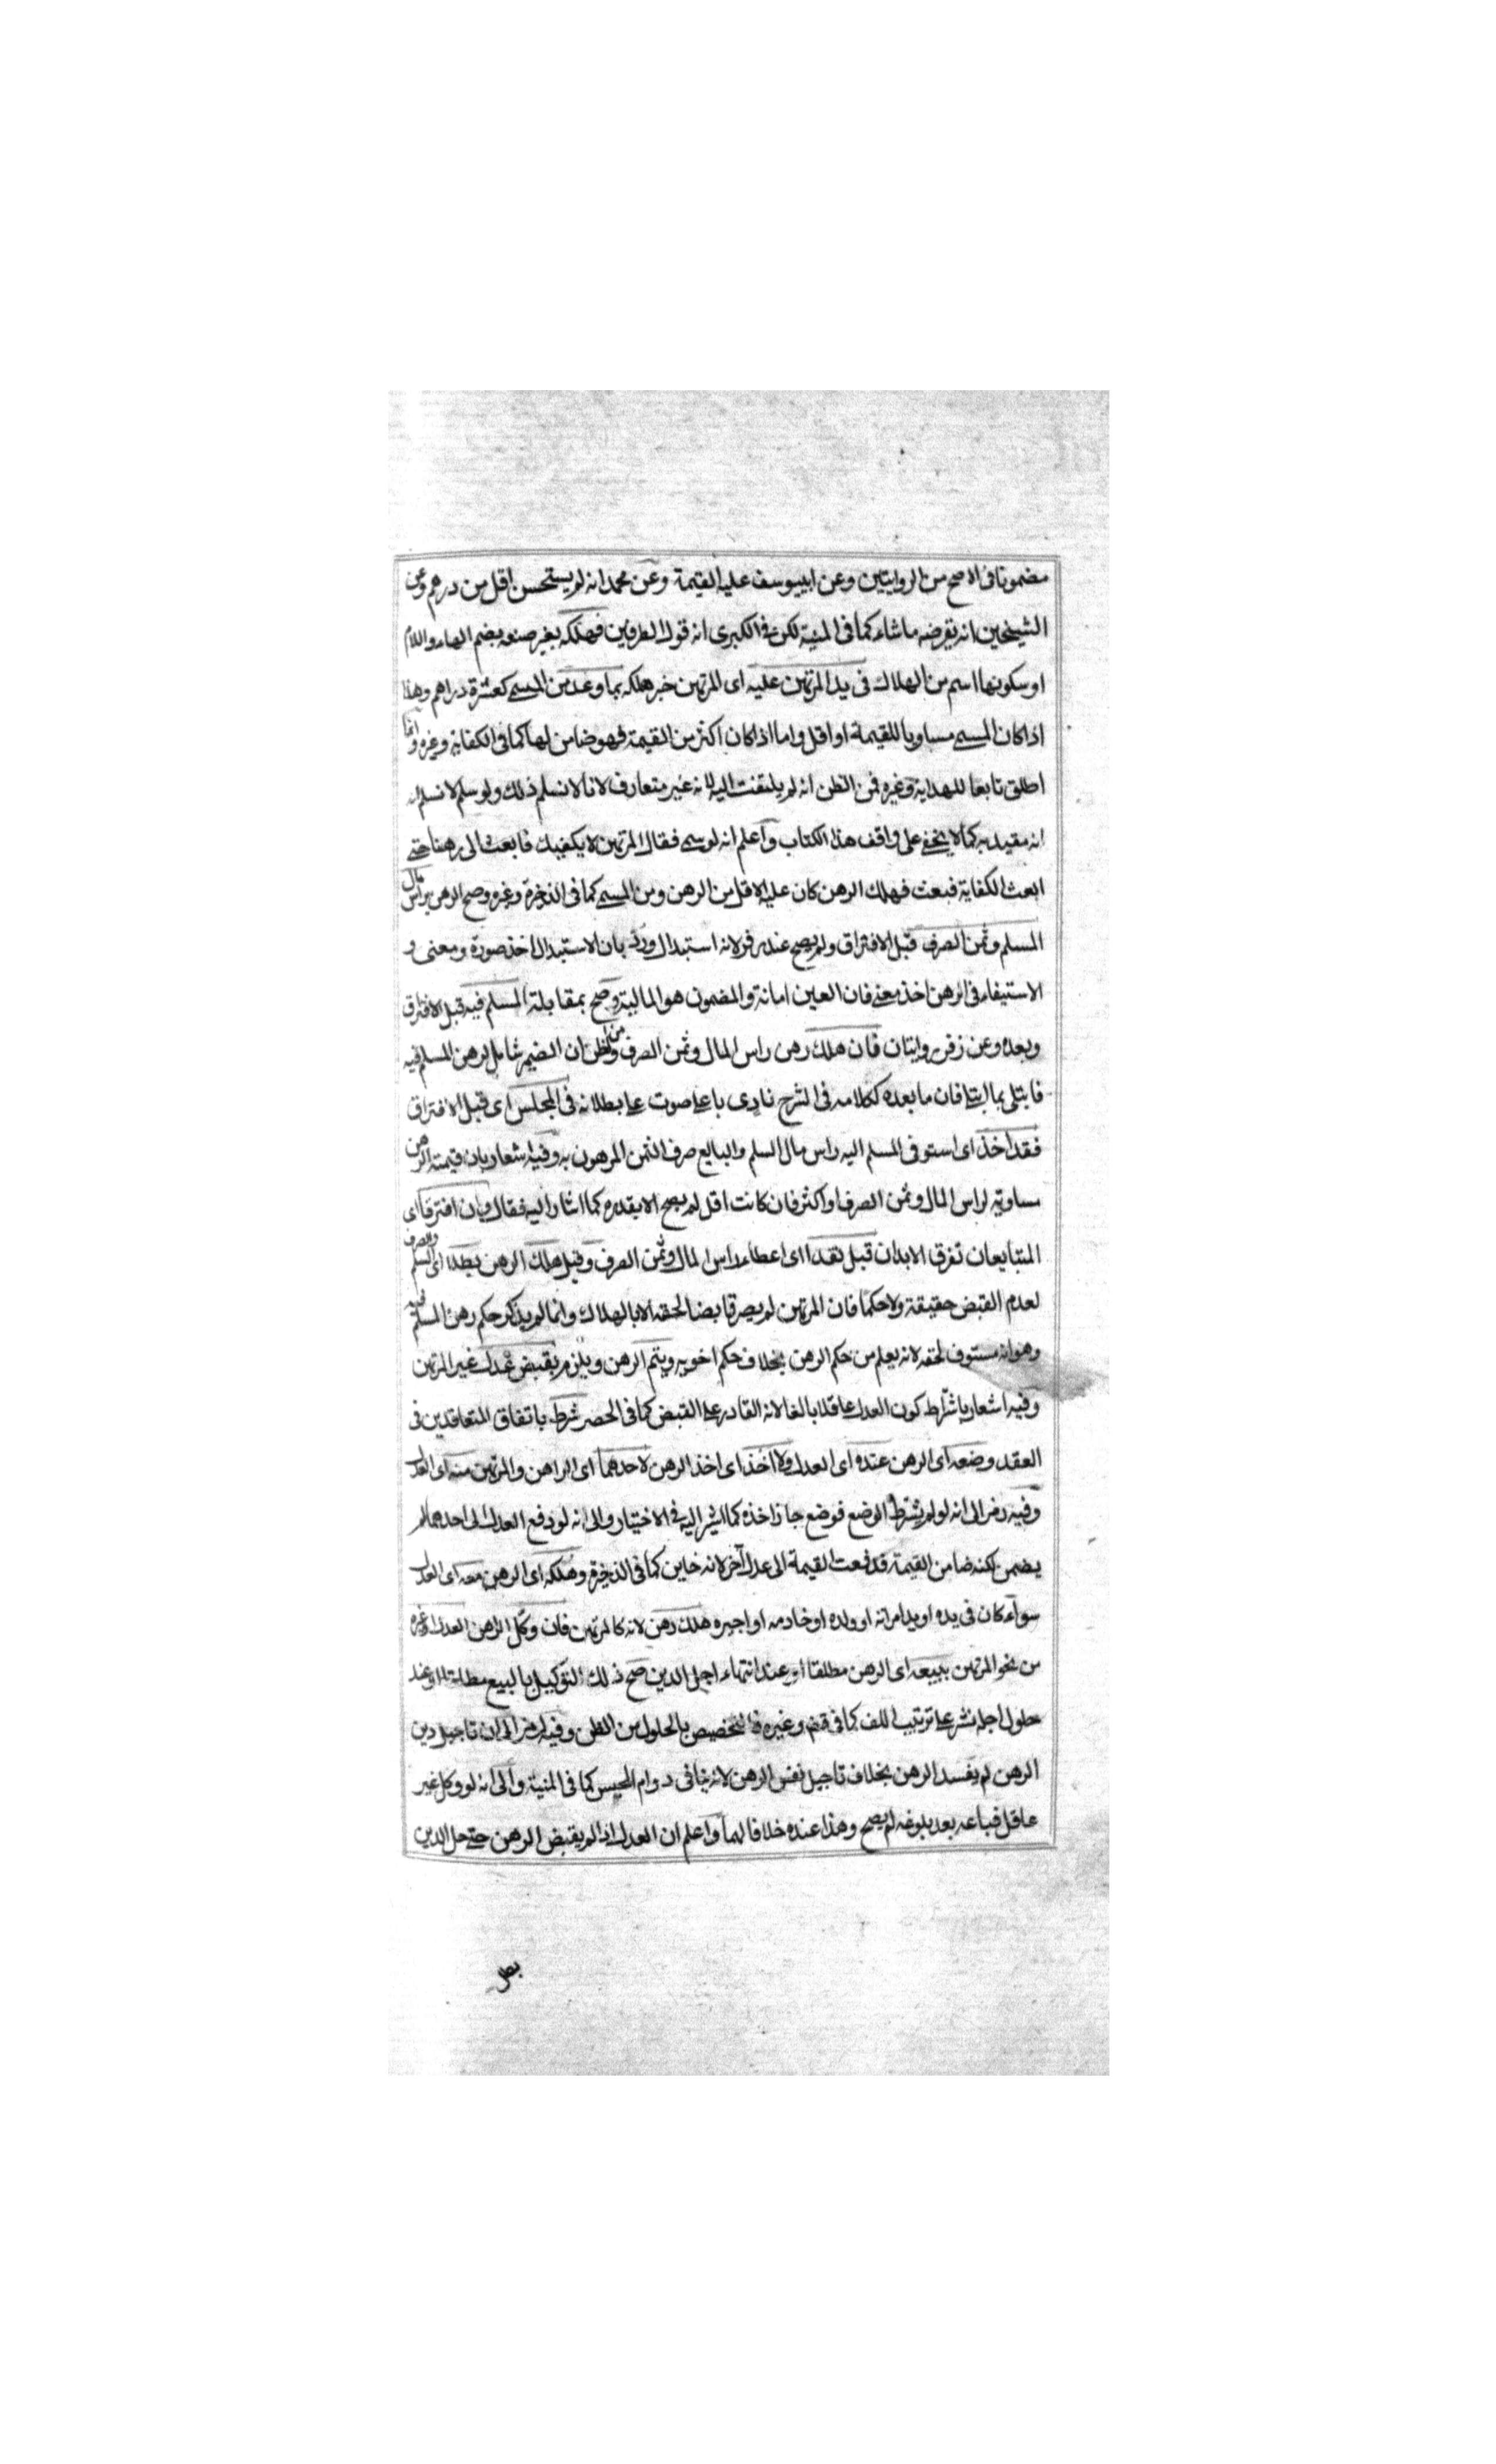 مضمونا فى الاصح من الروايتين وعن ابييوسف عليه القيمة وعن محمد انه لم يستحسن اقل من درهم وعن
الشيخين انه يقرضه ما شاء كما فى المنية لكن فى الكبرى انه قول الطرفين فهلكه بغير صنعه بضم الهاء واللام
او سكونها اسم من الهلاك فى يد المرتهن عليه اى المرتهن خبر هلكه بما وعد من المسمى كعشرة دراهم وهذا
اذا كان المسمى مساويا للقيمة او اقل واما اذا كان اكثر من القيمة فهو ضامن لها كما فى الكفاية وغيره وانما
اطلق تابعا للهداية وغيره فمن الظن انه لم يلتفت اليه لانه غير متعارف لانا لا نسلم ذلك ولو سلم لا نسلم انه
انه مقيد به كما لا يخفى على واقف هذا الكتاب واعلم انه لو سمى فقال المرتهن لا يكفيك فابعث الى رهنا حتى
ابعث الكفاية فبعث فهلك الرهن كان عليه الاقل من الرهن ومن المسمى كما فى الذخيرة وغيره وصح الرهن براس مال
المسلم وثمن الصرف قبل الافتراق ولم يصح عند زفر لانه استبدال ورد بان الاستبدال اخذ صورة ومعنى و
الاستيفاء فى الرهن اخذ معنى فان العين امانة والمضمون هو المالية وصح بمقابلة المسلم فيه قبل الافتراق
وبعده وعن زفر روايتان فان هلك رهن راس المال وثمن الصرف ومن ظن ان الضمير شامل لرهن المسلم فيه
فابتلى بما ابتلى فان ما بعده ككلامه فى الشرح نادى باعلى صوت على بطلانه فى المجلس اى قبل الافتراق
فقد اخذ اى استوفى المسلم اليه راس مال السلم والبايع صرف الثمن المرهون به وفيه اشعار بان قيمته الرهن
مساوية لراس المال وثمن الصرف او اكثر فان كانت اقل لم يصح الا بقدره كما اشار اليه فقال وان افترقا اى
المتبايعان تفرق الابدان قبل نقد اى اعطاء راس المال وثمن الصرف وقبل هلك الرهن بطلا اى السلم والصرف
لعدم القبض حقيقة ولا حكما فان المرتهن لم يصر قابضا لحقه الا بالهلاك وانما لم يذكر حكم رهن المسلم فيه
وهو انه مستوف لحقه لانه يعلم من حكم الرهن بخلاف حكم اخويه ويتم الرهن ويلزم بقبض عدل غير المرتهن
وفيه اشعار باشتراط كون العدل عاقلا بالغا لانه القادر على القبض كما فى الحصر شرط باتفاق المتعاقدين فى
العقد وضعه اى الرهن عنده اى العدل ولا اخذ اى اخذ الرهن لاحدهما اى الراهن والمرتهن منه اى العدل
وفيه رمز الى انه لو لم يشترط الوضع فوضع جاز اخذه كما اشير اليه فى الاختيار والى انه لو دفع العدل الى احدهما لم
يضمن لكنه ضامن القيمة فدفعت القيمة الى عدل آخر لانه خاين كما فى الذخيرة وهلكه اى الرهن معه اى العدل
سواء كان فى يده او يد امراته او ولده او خادمه او اجيره هلك رهن لانه كالمرتهن فان وكل الراهن العدل او غيره
من نحو المرتهن ببيعه اى الرهن مطلقا او عند انتهاء اجل الدين صح ذلك التوكيل بالبيع مطلقا او عند
حلول اجله نشر على ترتيب اللف كما فى وغيره فالتخصيص بالحلول من الظن وفيه رمز الى ان تاجيل دين
الرهن لم يفسد الرهن بخلاف تاجيل نفس الرهن لانه ينافى دوام الحبس كما فى المنية والى انه لو وكل غير
عاقل فباعه بعد بلوغه لم يصح وهذا عنده خلافا لهما واعلم ان العدل اذا لم يقبض الرهن حتى حل الدين